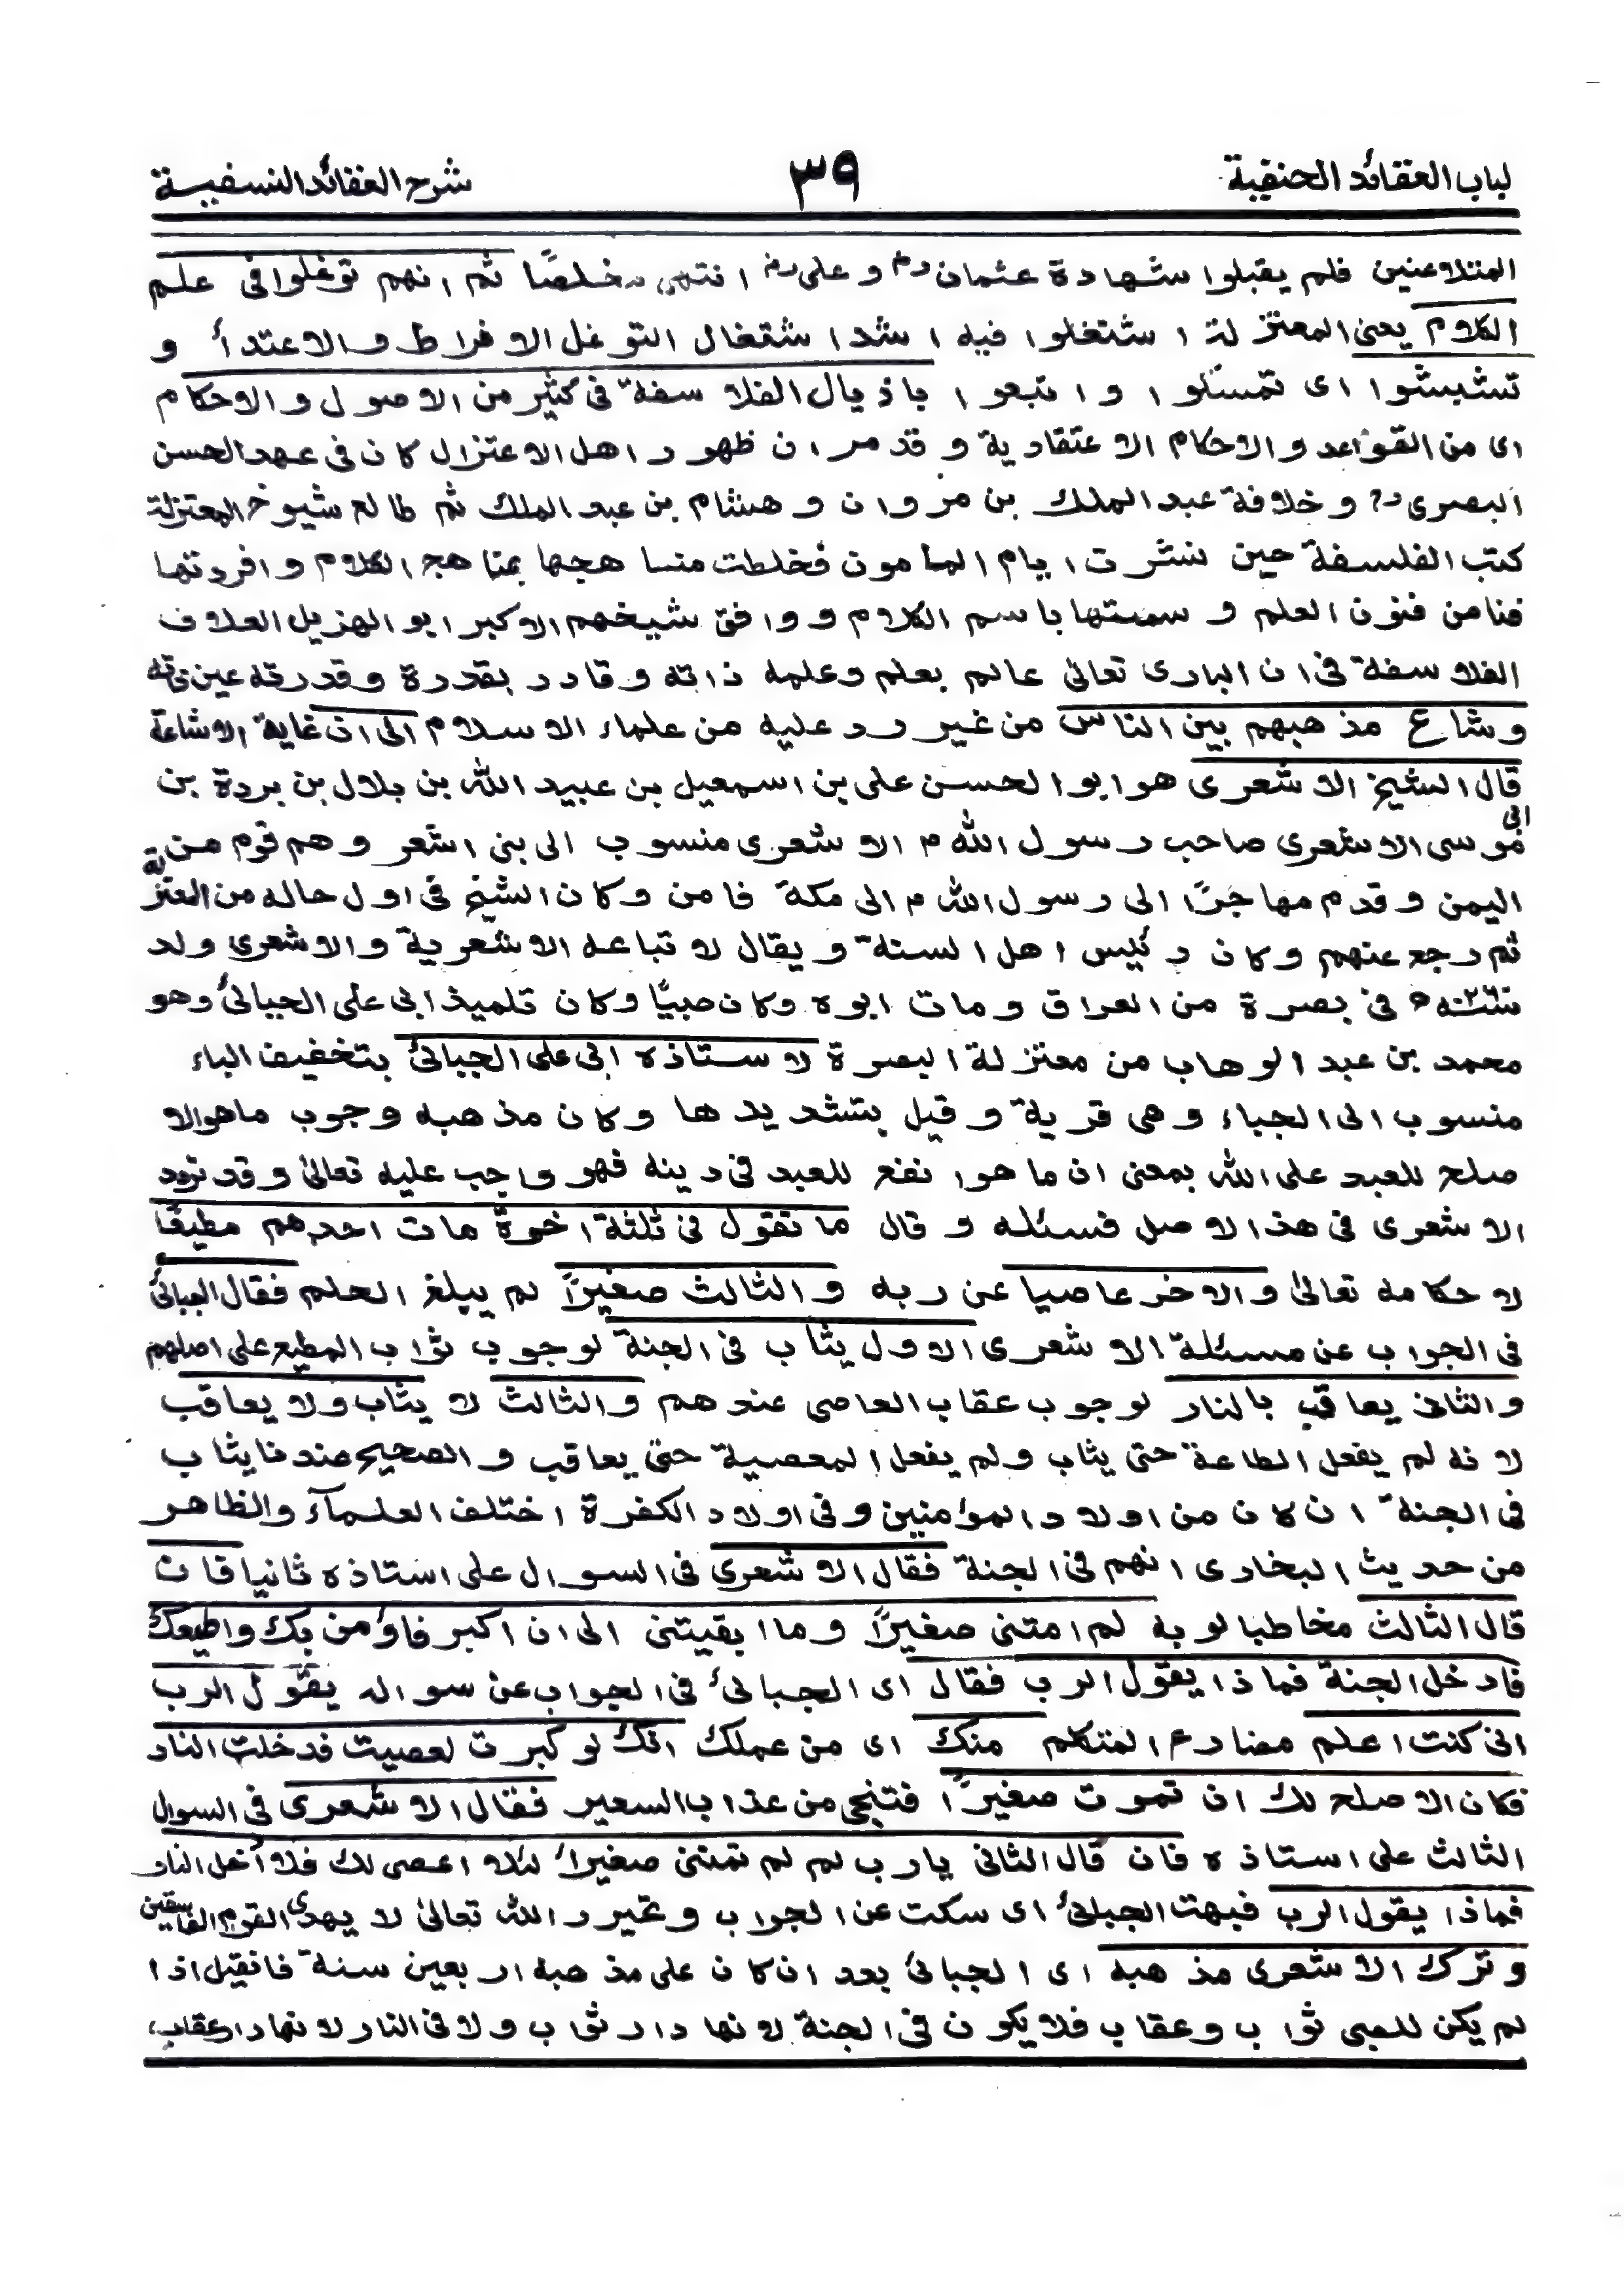 لباب العقائد الحنفية ٣٩ شرح العقائد النسفية
المتلاعنين فلم يقبلوا شهادة عثمان رض و على رض انتهى مخلصًا ثم انهم توغلوا فى علم
الكلام يعنى المعتزلة اشتغلوا فيه اشد اشتغال التوغل الافراط والاعتدأ و
تشبثوا اى تمسكوا واتبعوا باذيال الفلاسفة فى كثير من الاصول والاحكام
اى من القواعد والاحكام الاعتقادية وقد مر ان ظهور اهل الاعتزال كان فى عهد الحسن
البصرى رح وخلافة عبد الملك بن مروان وهشام بن عبد الملك ثم طالع شيوخ المعتزلة
كتب الفلسفة حين نشرت ايام المامون فخلطت مناهجها بمناهج الكلام وافردتها
فنا من فنون العلم و سمتها باسم الكلام ووافق شيخهم الاكبر ابو الهزيل العلاف
الفلاسفة فى ان البارى تعالى عالم بعلم وعلمه ذاته وقادر بقدرة وقدرته عين ذاته
وشاع مذهبهم بين الناس من غير رد عليه من علماء الاسلام الى ان غاية الاشاعة
قال الشيخ الاشعرى هو ابو الحسن على بن اسمعيل بن عبيد الله بن بلال بن بردة بن
ابى موسى الاشعرى صاحب رسول الله م الاشعرى منسوب الى بنى اشعر وهم قوم من
اليمن وقدم مهاجرًا الى رسول الله م الى مكة فامن وكان الشيخ فى اول حاله من المعتزلة
ثم رجع عنهم وكان رئيس اهل السنة ويقال لاتباعه الاشعرية والاشعرى ولد
سنة ٢٦٠ ه فى بصرة من العراق ومات ابوه وكان صبيًا وكان تلميذ ابى على الجبائى وهو
محمد بن عبد الوهاب من معتزلة البصرة لاستاذه ابى على الجبائى بتخفيف الباء
منسوب الى الجباء وهى قرية وقيل بتشديدها وكان مذهبه وجوب ماهو الا
صلح للعبد على الله بمعنى ان ما هو انفع للعبد فى دينه فهو واجب عليه تعالى وقد تردد
الاشعرى فى هذا الاصل فسئله و قال ما تقول فى ثلثة اخوة مات احدهم مطيعًا
لاحكامه تعالى والاخر عاصيا عن ربه والثالث صغيرًا لم يبلغ الحلم فقال الجبائى
فى الجواب عن مسئلة الاشعرى الاول يثاب فى الجنة لوجوب ثواب المطيع على اصلهم
والثانى يعاقب بالنار لوجوب عقاب العاصى عندهم والثالث لا يثاب ولا يعاقب
لانه لم يفعل الطاعة حتى يثاب ولم يفعل المعصية حتى يعاقب والصحيح عندنا يثاب
فى الجنة ان كان من اولاد المؤمنين وفى اولاد الكفرة اختلف العلمآء والظاهر
من حديث البخارى انهم فى الجنة فقال الاشعرى فى السوال على استاذه ثانيا فان
قال الثالث مخاطبا لربه لم امتنى صغيرًا وما ابقيتنى الى ان اكبر فاؤمن بك واطيعك
فادخل الجنة فماذا يقول الرب فقال اى الجبائى فى الجواب عن سواله يقول الرب
انى كنت اعلم مضارع المتكلم منك اى من عملك انك لو كبرت لعصيت فدخلت النار
فكان الاصلح لك ان تموت صغيرًا فتنجى من عذاب السعير فقال الاشعرى فى السوال
الثالث على استاذه فان قال الثانى يارب لم لم تمتنى صغيرا لئلا اعصى لك فلا أدخل النار
فماذا يقول الرب فبهت الجبائى اى سكت عن الجواب وتحير والله تعالى لا يهدى القوم الفاسقين
وترك الاشعرى مذهبه اى الجبائى بعد ان كان على مذهبه اربعين سنة فانقيل اذا
لم يكن للصبى ثواب وعقاب فلا يكون فى الجنة لانها دار ثواب ولا فى النار لانها دار عقاب